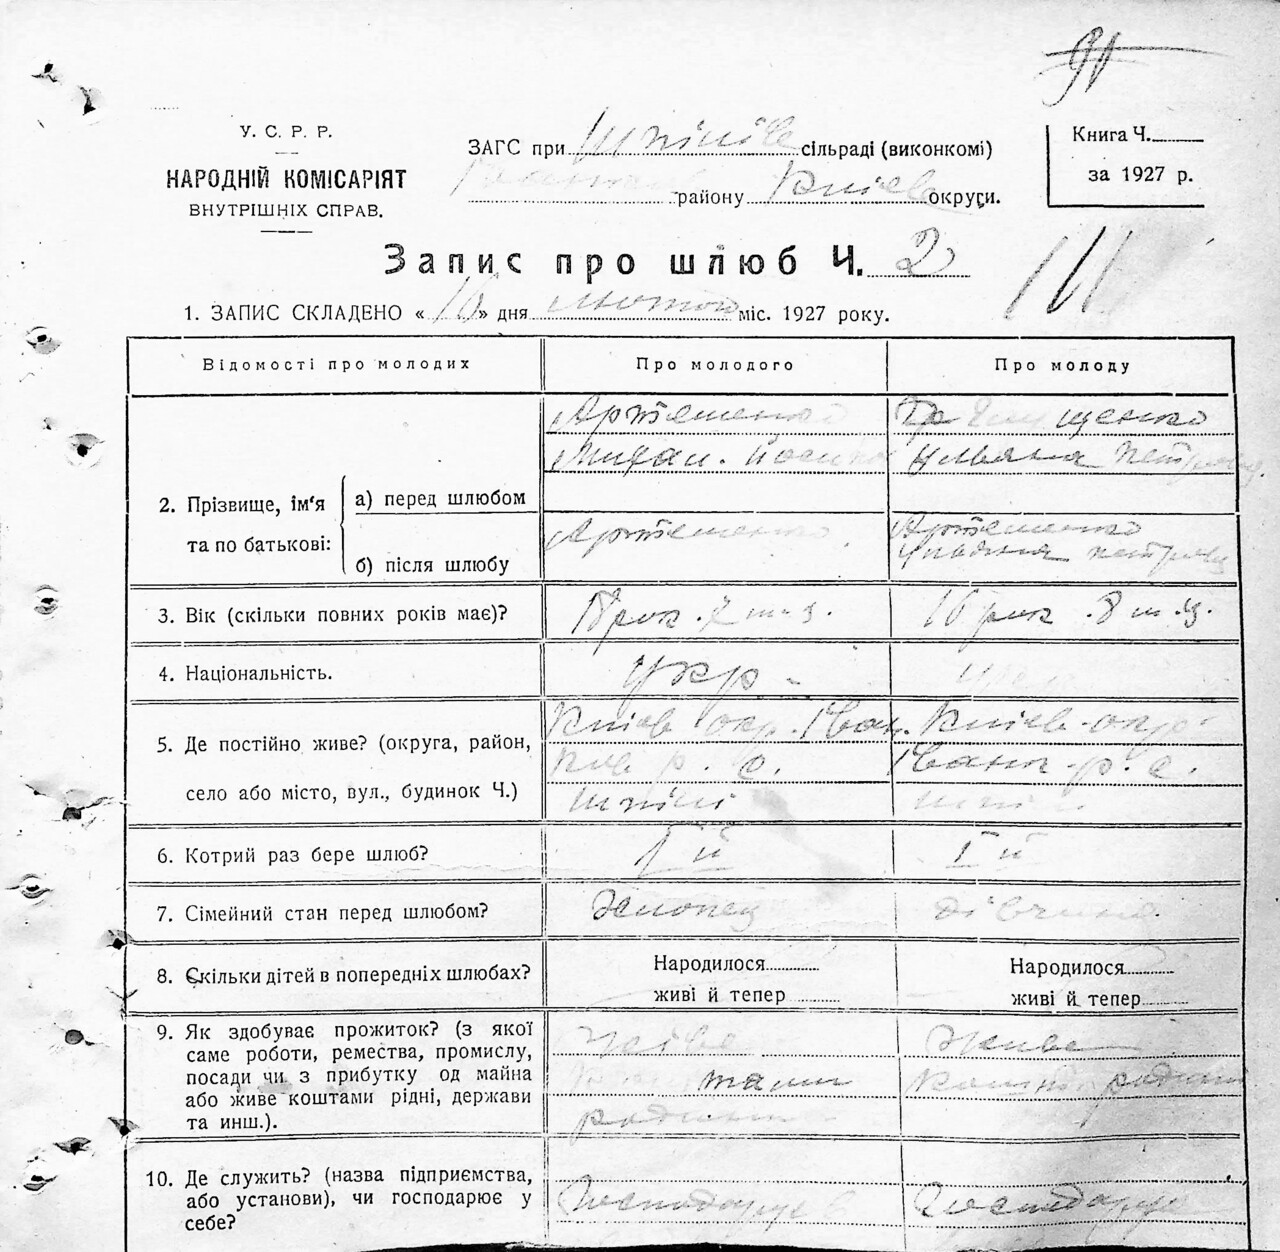 91
У. С. Р. Р.
НАРОДНІЙ КОМІСАРІЯТ
ВНУТРІШНІХ СПРАВ.
ЗАГС при Шпілів сільраді (виконкомі)
району Київ округи.
Книга Ч.
за 1927 р.
Запис про шлюб Ч. 2
111
1. ЗАПИС СКЛАДЕНО « 16 » дня лютого міс. 1927 року.
Відомості про молодих
Про молодого
Про молоду
2. Прізвище, ім'я та по батькові:
а) перед шлюбом
Артеменко
Михай. Йосипо
щенко
Ульяна Петров.
б) після шлюбу
Артеменко
Артеменко
Уляяна Петров
3. Вік (скільки повних років має)?
18 рок. 7 м-ц.
16 рок. 8 м-ц.
4. Національність.
укр -
укр
5. Де постійно живе? (округа, район,
село або місто, вул., будинок Ч.)
Київ окр. Іван.
ків р. с.
Шпілі
Київ-окр-
Іванк-р. с.
Шпі-
6. Котрий раз бере шлюб?
I й
I й
7. Сімейний стан перед шлюбом?
Хлопец
дівчина
8. Скільки дітей в попередніх шлюбах?
Народилося
живі й тепер
Народилося
живі й тепер
9. Як здобуває прожиток? (з якої
саме роботи, ремества, промислу,
посади чи з прибутку од майна
або живе коштами рідні, держави
та инш.).
живе
тами
родини
Живе
кошта родини
10. Де служить? (назва підприємства,
або установи), чи господарює у
себе?
Господарує в
Господарує